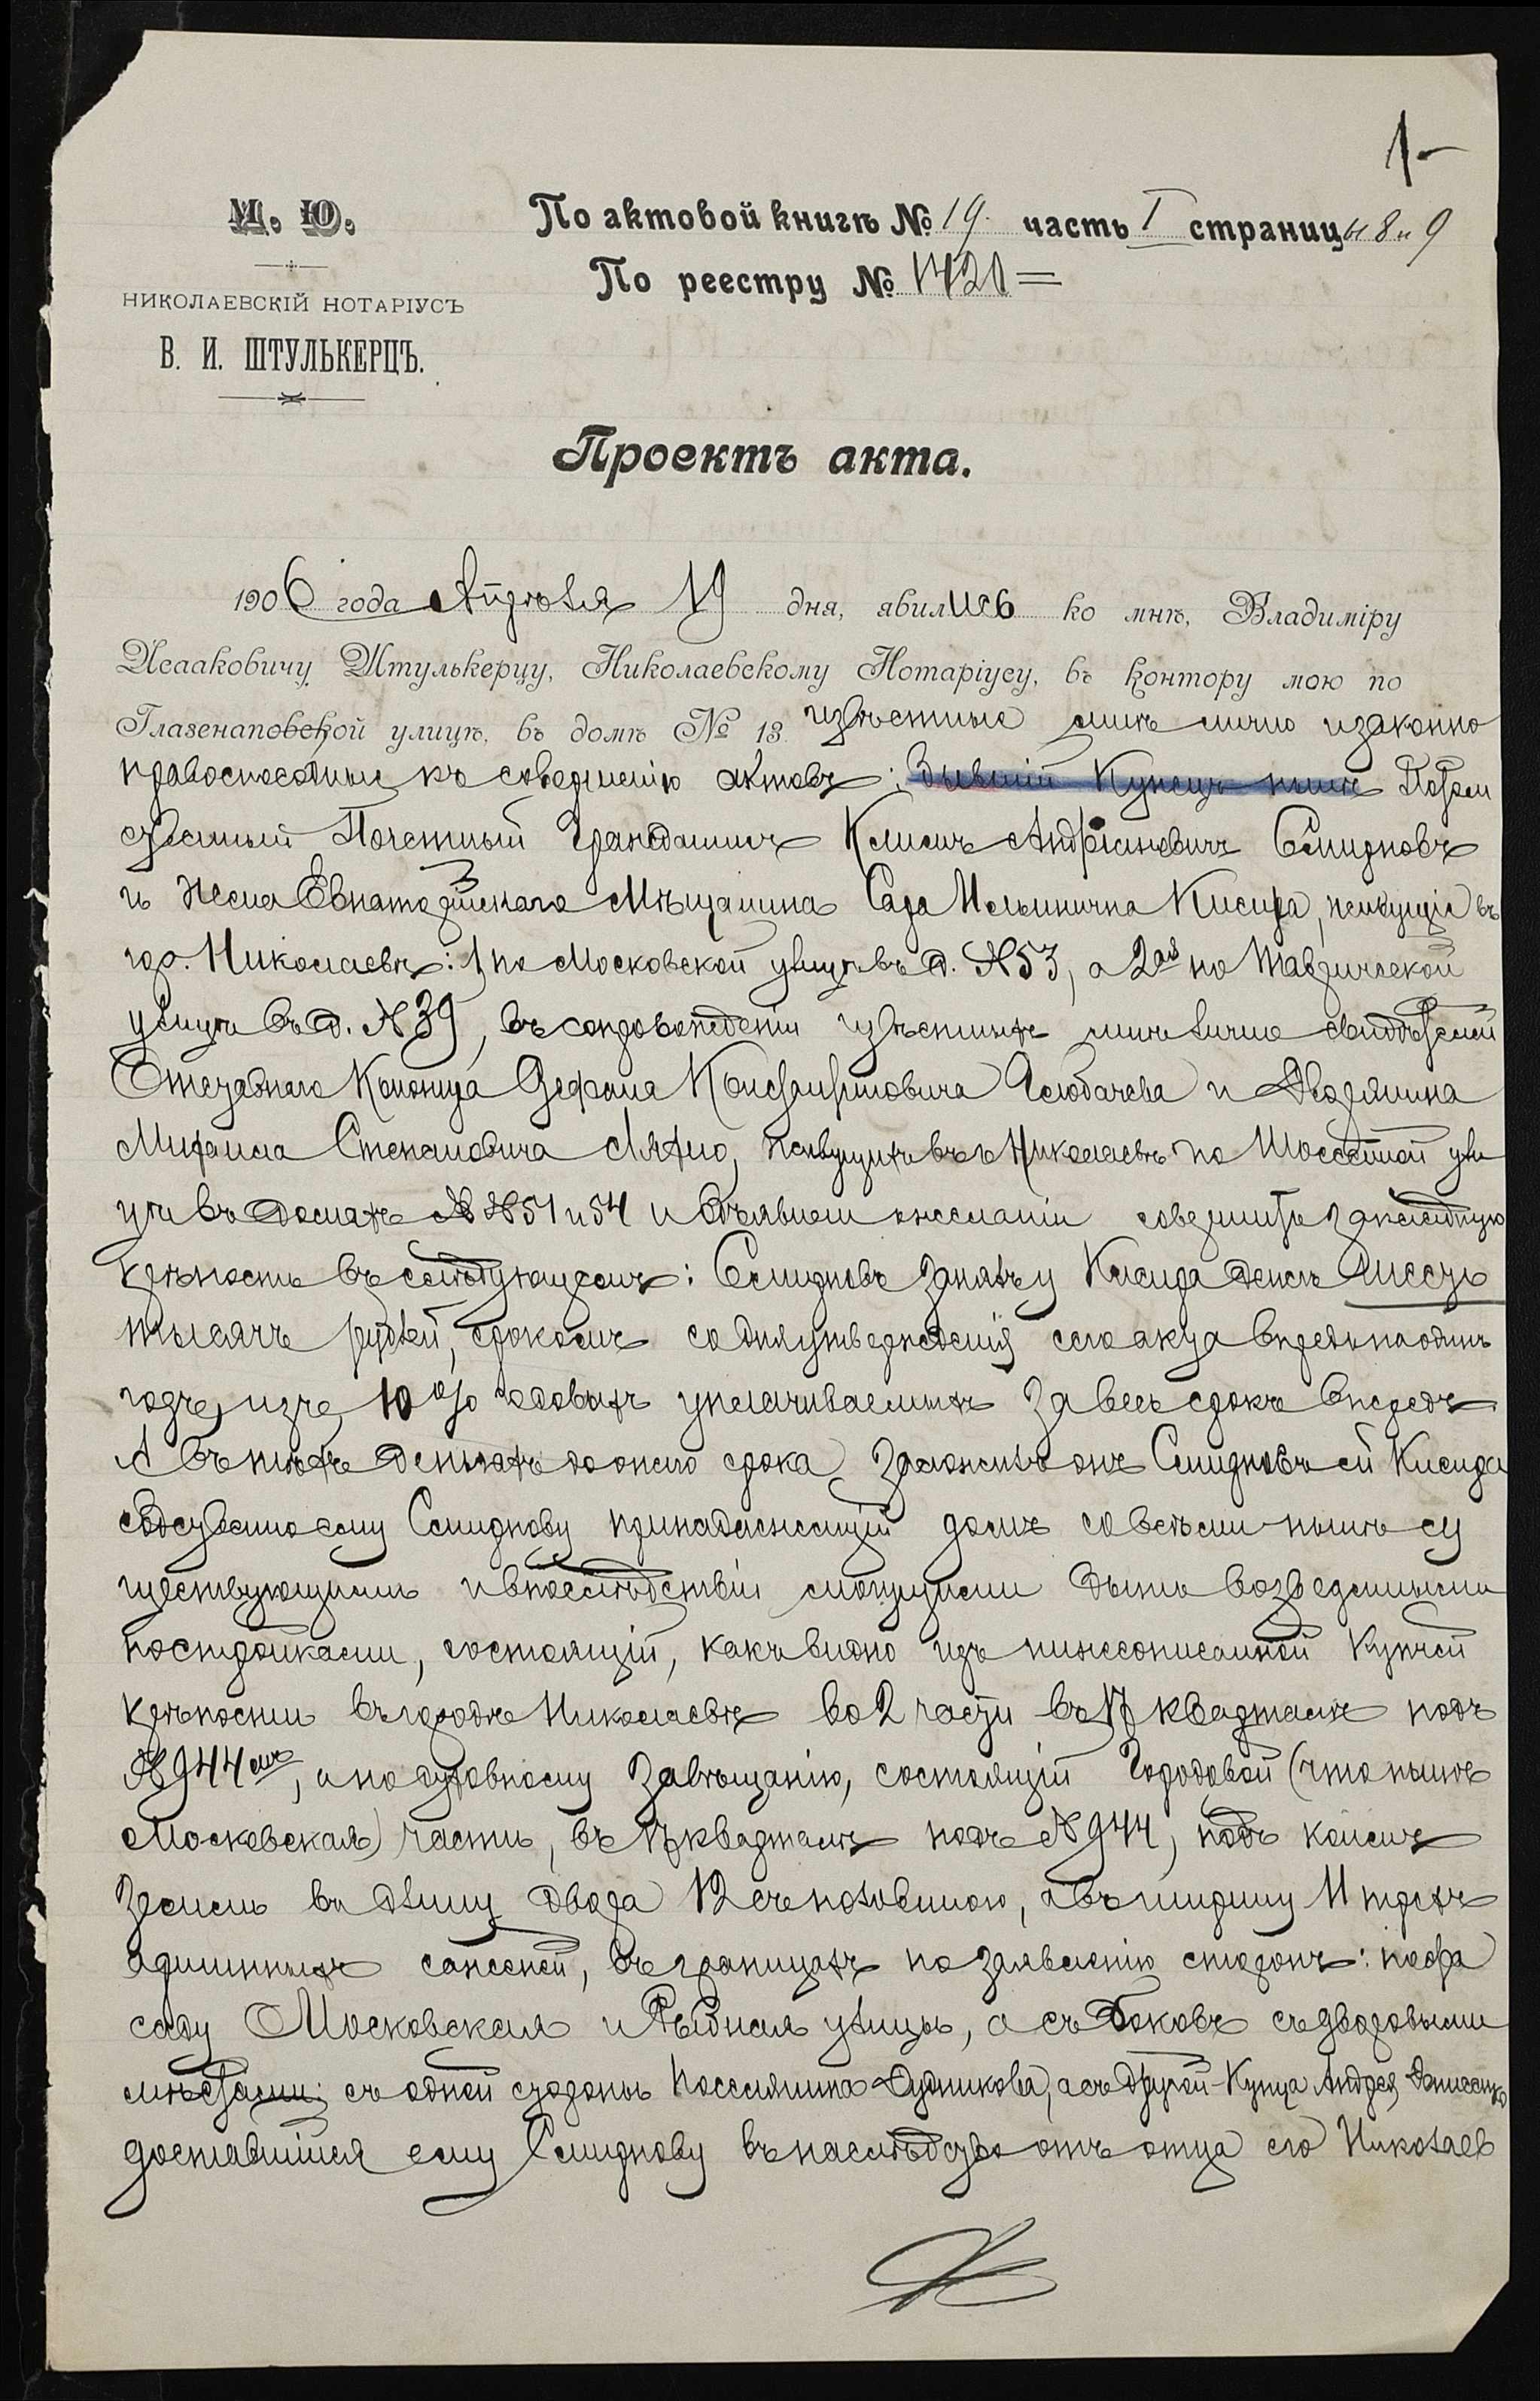 1
М. Ю.
НИКОЛАЕВСКІЙ НОТАРІУСЪ
В. И. ШТУЛЬКЕРЦЪ.
По актовой книгѣ № 19. часть I страницы 8 и 9
По реестру № 1420
Проектъ акта.
1906 года Апрѣля 19 дня, явились ко мнѣ, Владиміру
Исааковичу Штулькерцу, Николаевскому Нотаріусу, въ контору мою по
Глазенаповской улицѣ, въ домѣ № 13 извѣстные мнѣ лично и законно
правоспособные къ совершенію актовъ: Бывшій Купецъ нынѣ Потом
ственный Почетный Гражданинъ Климъ Андріановичъ Смирновъ
и Жена Евпаторійскаго Мѣщанина Сара Ильинична Кисира, живущіе въ
гор. Николаевѣ: 1 по Московской улицѣ въ д. № 53, а 2ая по Таврической
улицѣ въ д. № 39, въ сопровожденіи извѣстныхъ мнѣ лично свидѣтелей
Константиновича и Дворянина
Михаила Степановича Ляхно, живущихъ въ г. Николаевѣ по Шоссейной ули
цѣ въ домахъ №№ 51 и 54 и объявили желаніи совершить закладную
крѣпость въ слѣдующемъ: Смирновъ занялъ у Кисира денегъ шесть
тысячъ рублей, срокомъ со дня утвержденія сего акта впредь на одинъ
годъ, изъ 10 % годовыхъ уплачиваемыхъ за весь срокъ впередъ
А въ тѣхъ деньгахъ до онаго срока заложилъ онъ Смирновъ ей Кисира
собственно ему Смирнову принадлежащій домъ со всѣми нынѣ су
ществующими и впослѣдствіи могущими быть возведенными
постройками, состоящій, какъ видно изъ нижеописанной купчей
крѣпости въ городѣ Николаевѣ во 2 части въ 17 кварталѣ подъ
№ 944 мъ, а по духовному завѣщанію, состоящій Городовой (что нынѣ
Московская) части, въ 17 кварталѣ подъ № 944, подъ коимъ
земли въ длину двора 12 съ половиною, а въ ширину 11 трехъ
аршинныхъ саженей, въ границахъ по заявленію сторонъ: по фа
саду Московская и Рыбная улицы, а съ боковъ съ дворовыми
мѣстами: съ одной стороны Поселянина Судникова, а съ другой - Купца Андрея
доставшійся ему Смирнову въ наслѣдство отъ отца его Николаев